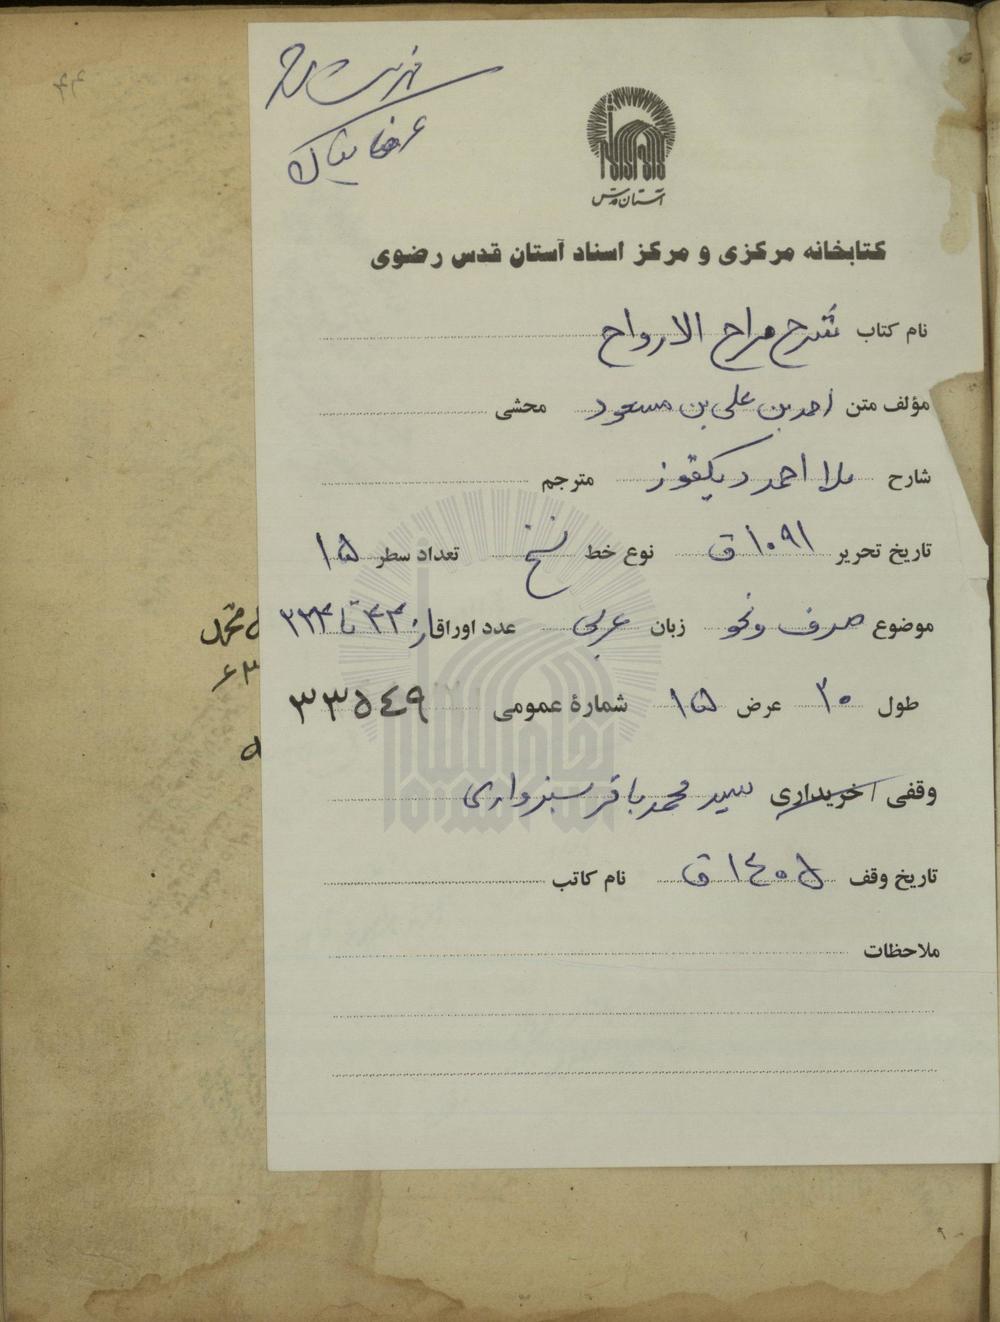 فهرست شد
عرفانیان
آستان قدس
کتابخانه مرکزی و مرکز اسناد آستان قدس رضوی
نام کتاب شرح مراح الارواح
مؤلف متن احمد بن علی بن مسعود محشی
شارح ملا احمد دیکقوز مترجم
تاریخ تحریر ۱۰۹۱ ق نوع خط نسخ تعداد سطر ۱۵
موضوع صرف و نحو زبان عربی عدد اوراق از ۴۳ تا ۲۲۴
طول ۲۰ عرض ۱۵ شمارهٔ عمومی ۳۳۵۴۹
وقفی / خریداری سید محمد باقر سبزواری
تاریخ وقف ۱۴۰۵ ق نام کاتب
ملاحظات
محمد